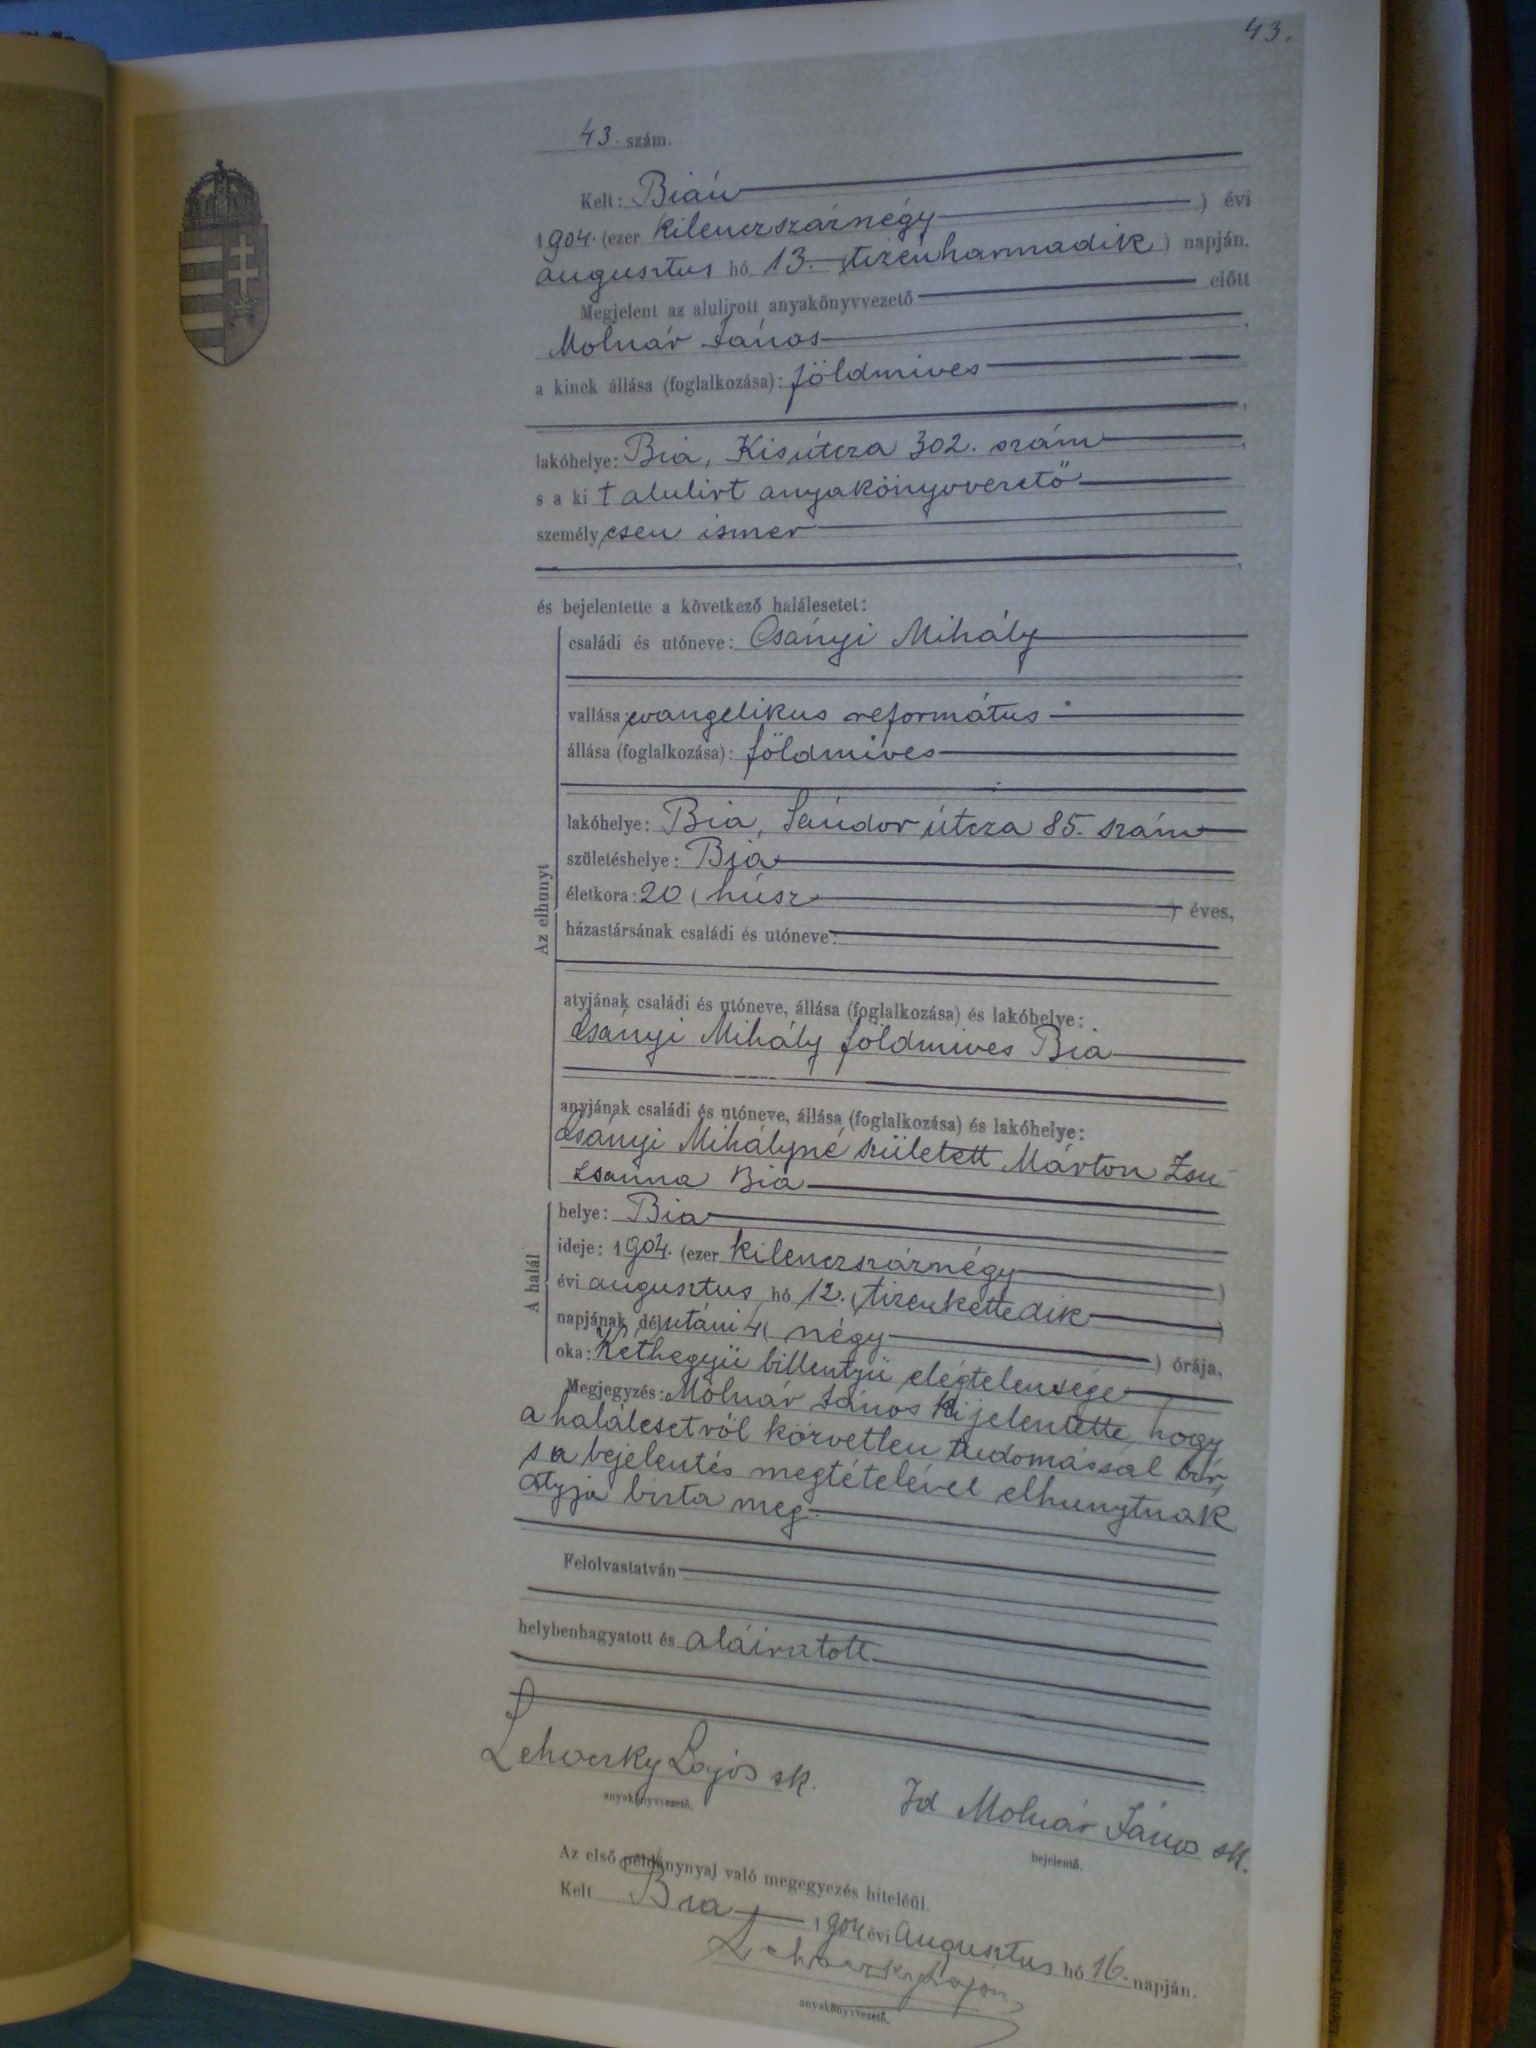 43.
43. szám.
Kelt: Bián
1904. (ezer kilenczszáznégy ) évi
augusztus hó 13. (tizenharmadik ) napján.
Megjelent az alulirott anyakönyvvezető előtt
Molnár János ,
a kinek állása (foglalkozása): földmives
,
lakóhelye: Bia, Kisútcza 302. szám ,
s a ki t alulirt anyakönyvvezető
személy esen ismer
,
és bejelentette a következő halálesetet:
Az elhunyt
családi és utóneve: Csányi Mihály
vallása: evangelikus református
állása (foglalkozása): földmives
lakóhelye: Bia, Sándor útcza 85. szám
születéshelye: Bia
életkora: 20 ( húsz ) éves,
házastársának családi és utóneve:
atyjának családi és utóneve, állása (foglalkozása) és lakóhelye:
Csányi Mihály földmives Bia
anyjának családi és utóneve, állása (foglalkozása) és lakóhelye:
Csányi Mihályné született Márton Zsu-
zsanna Bia
A halál
helye: Bia
ideje: 1904. (ezer kilenczszáznégy )
évi augusztus hó 12. (tizenkettedik )
napjának délutáni 4 ( négy ) órája,
oka: Kéthegyü billentyü elégtelensége
Megjegyzés: Molnár János kijelentette, hogy
a halálesetről közvetlen tudomással bir,
s a bejelentés megtételével elhunytnak
atyja bizta meg.
Felolvastatván
helybenhagyatott és aláiratott
Lehoczky Lajos sk. Id Molnár János sk.
anyakönyvvezető. bejelentő.
Az első példánynyal való megegyezés hiteléül.
Kelt Bia 1904 évi Augusztus hó 16. napján.
Lehoczky Lajos
anyakönyvvezető.